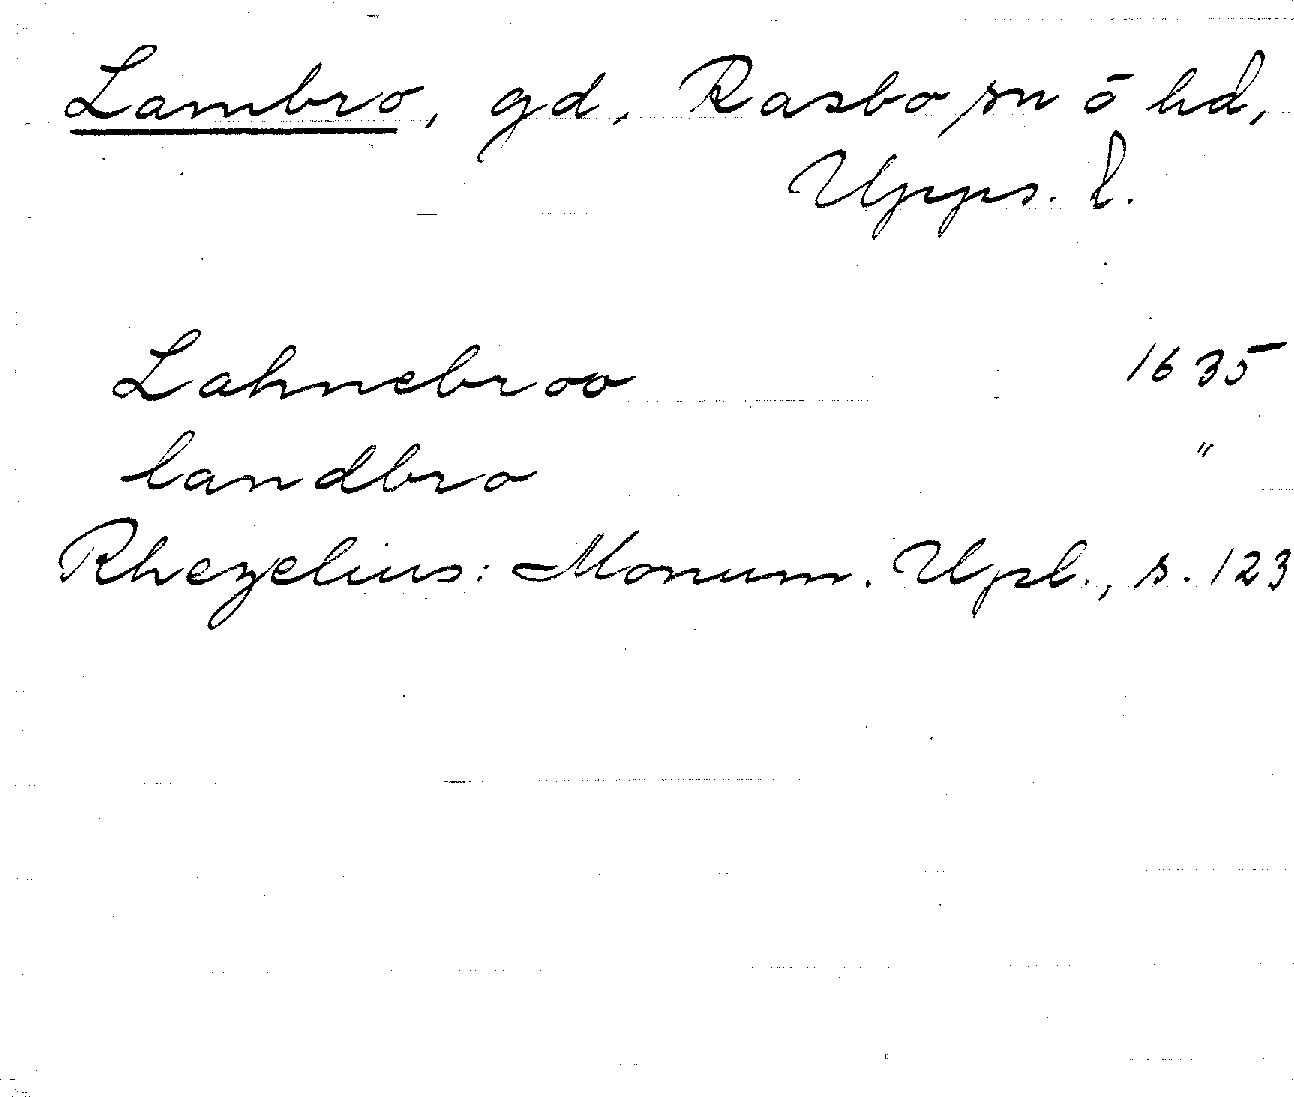 Lambro, gd, Rasbo sn ō hd,
Upps. l.
Lahnebroo 1635
landbro "
Rhezelius: Monum. Upl., s. 123